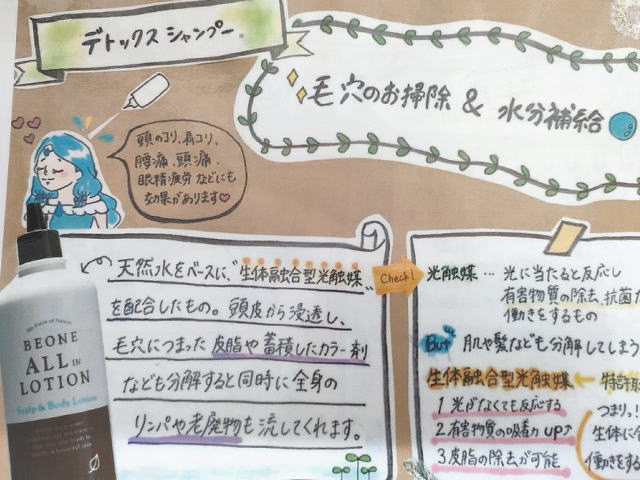 デトックスシャンプー
毛穴のお掃除 & 水分補給
頭のコリ、肩コリ、
腰痛、頭痛、
眼精疲労などにも
効果があります♡
天然水をベースに、"生体融合型光触媒"
を配合したもの。頭皮から浸透し、
毛穴につまった皮脂や蓄積したカラー剤
なども分解すると同時に全身の
リンパや老廃物も流してくれます。
Check!
光触媒…光に当たると反応し
有害物質の除去、抗菌
働きをするもの
But 肌や髪なども分解してしまう
生体融合型光触媒 ← 特許
1 光がなくても反応する
2 有害物質の吸着力 UP↑
3 皮脂の除去が可能
つまり、!
生体に
働きをする
BEONE
ALL IN
LOTION
Scalp & Body Lotion